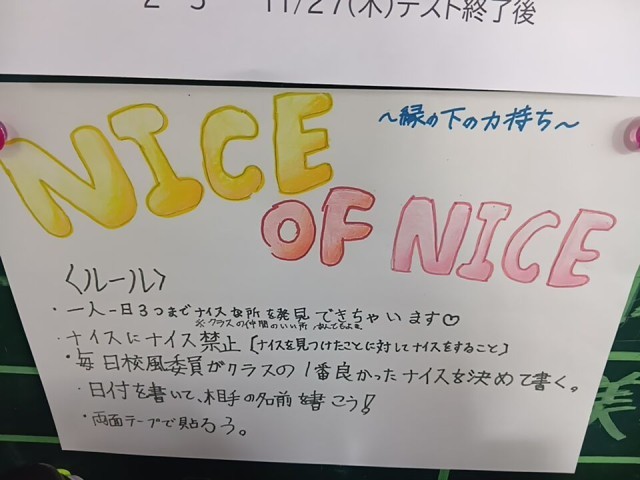 2-3 11/27(木)テスト終了後
NICE
～縁の下の力持ち～
OF NICE
〈ルール〉
・一人一日3つまでナイスな所を発見できちゃいます♡
※クラスの仲間のいい所
・ナイスにナイス禁止 [ナイスを見つけたことに対してナイスをすること]
・毎日校風委員がクラスの1番良かったナイスを決めて書く。
・日付を書いて、相手の名前を書こう!!
・両面テープで貼ろう。
実